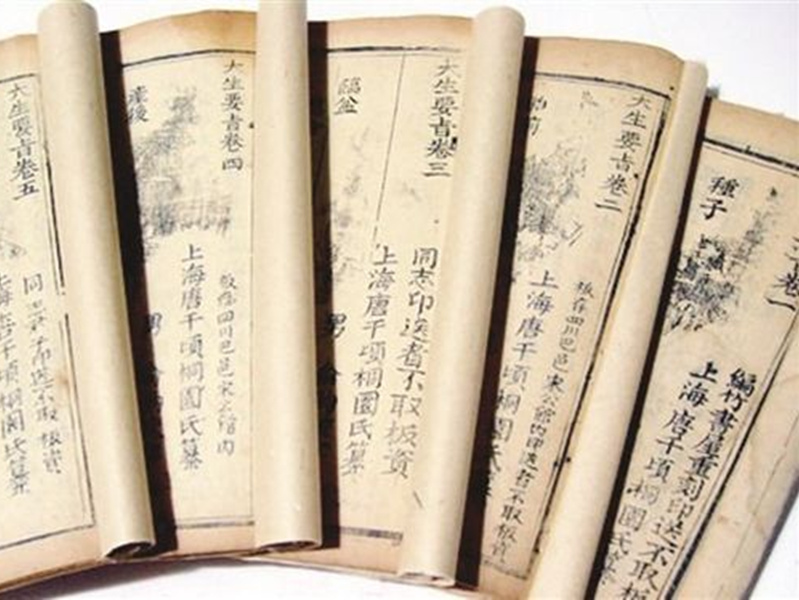 卷一
種子
編竹書屋重刻印送不取板
上海唐千頃桐園氏纂
大生要旨卷二
胎前
板存四川巴邑宋公館內印送者不取板資
上海唐千頃桐園氏
大生要旨卷三
臨盆
同志印送者不取板資
上海唐千頃桐園氏纂
男
大生要旨卷四
產後
板存四川巴邑宋公館內
上海唐千頃桐園氏纂
男
大生要旨卷五
印送不取板資
海唐千頃桐園氏纂